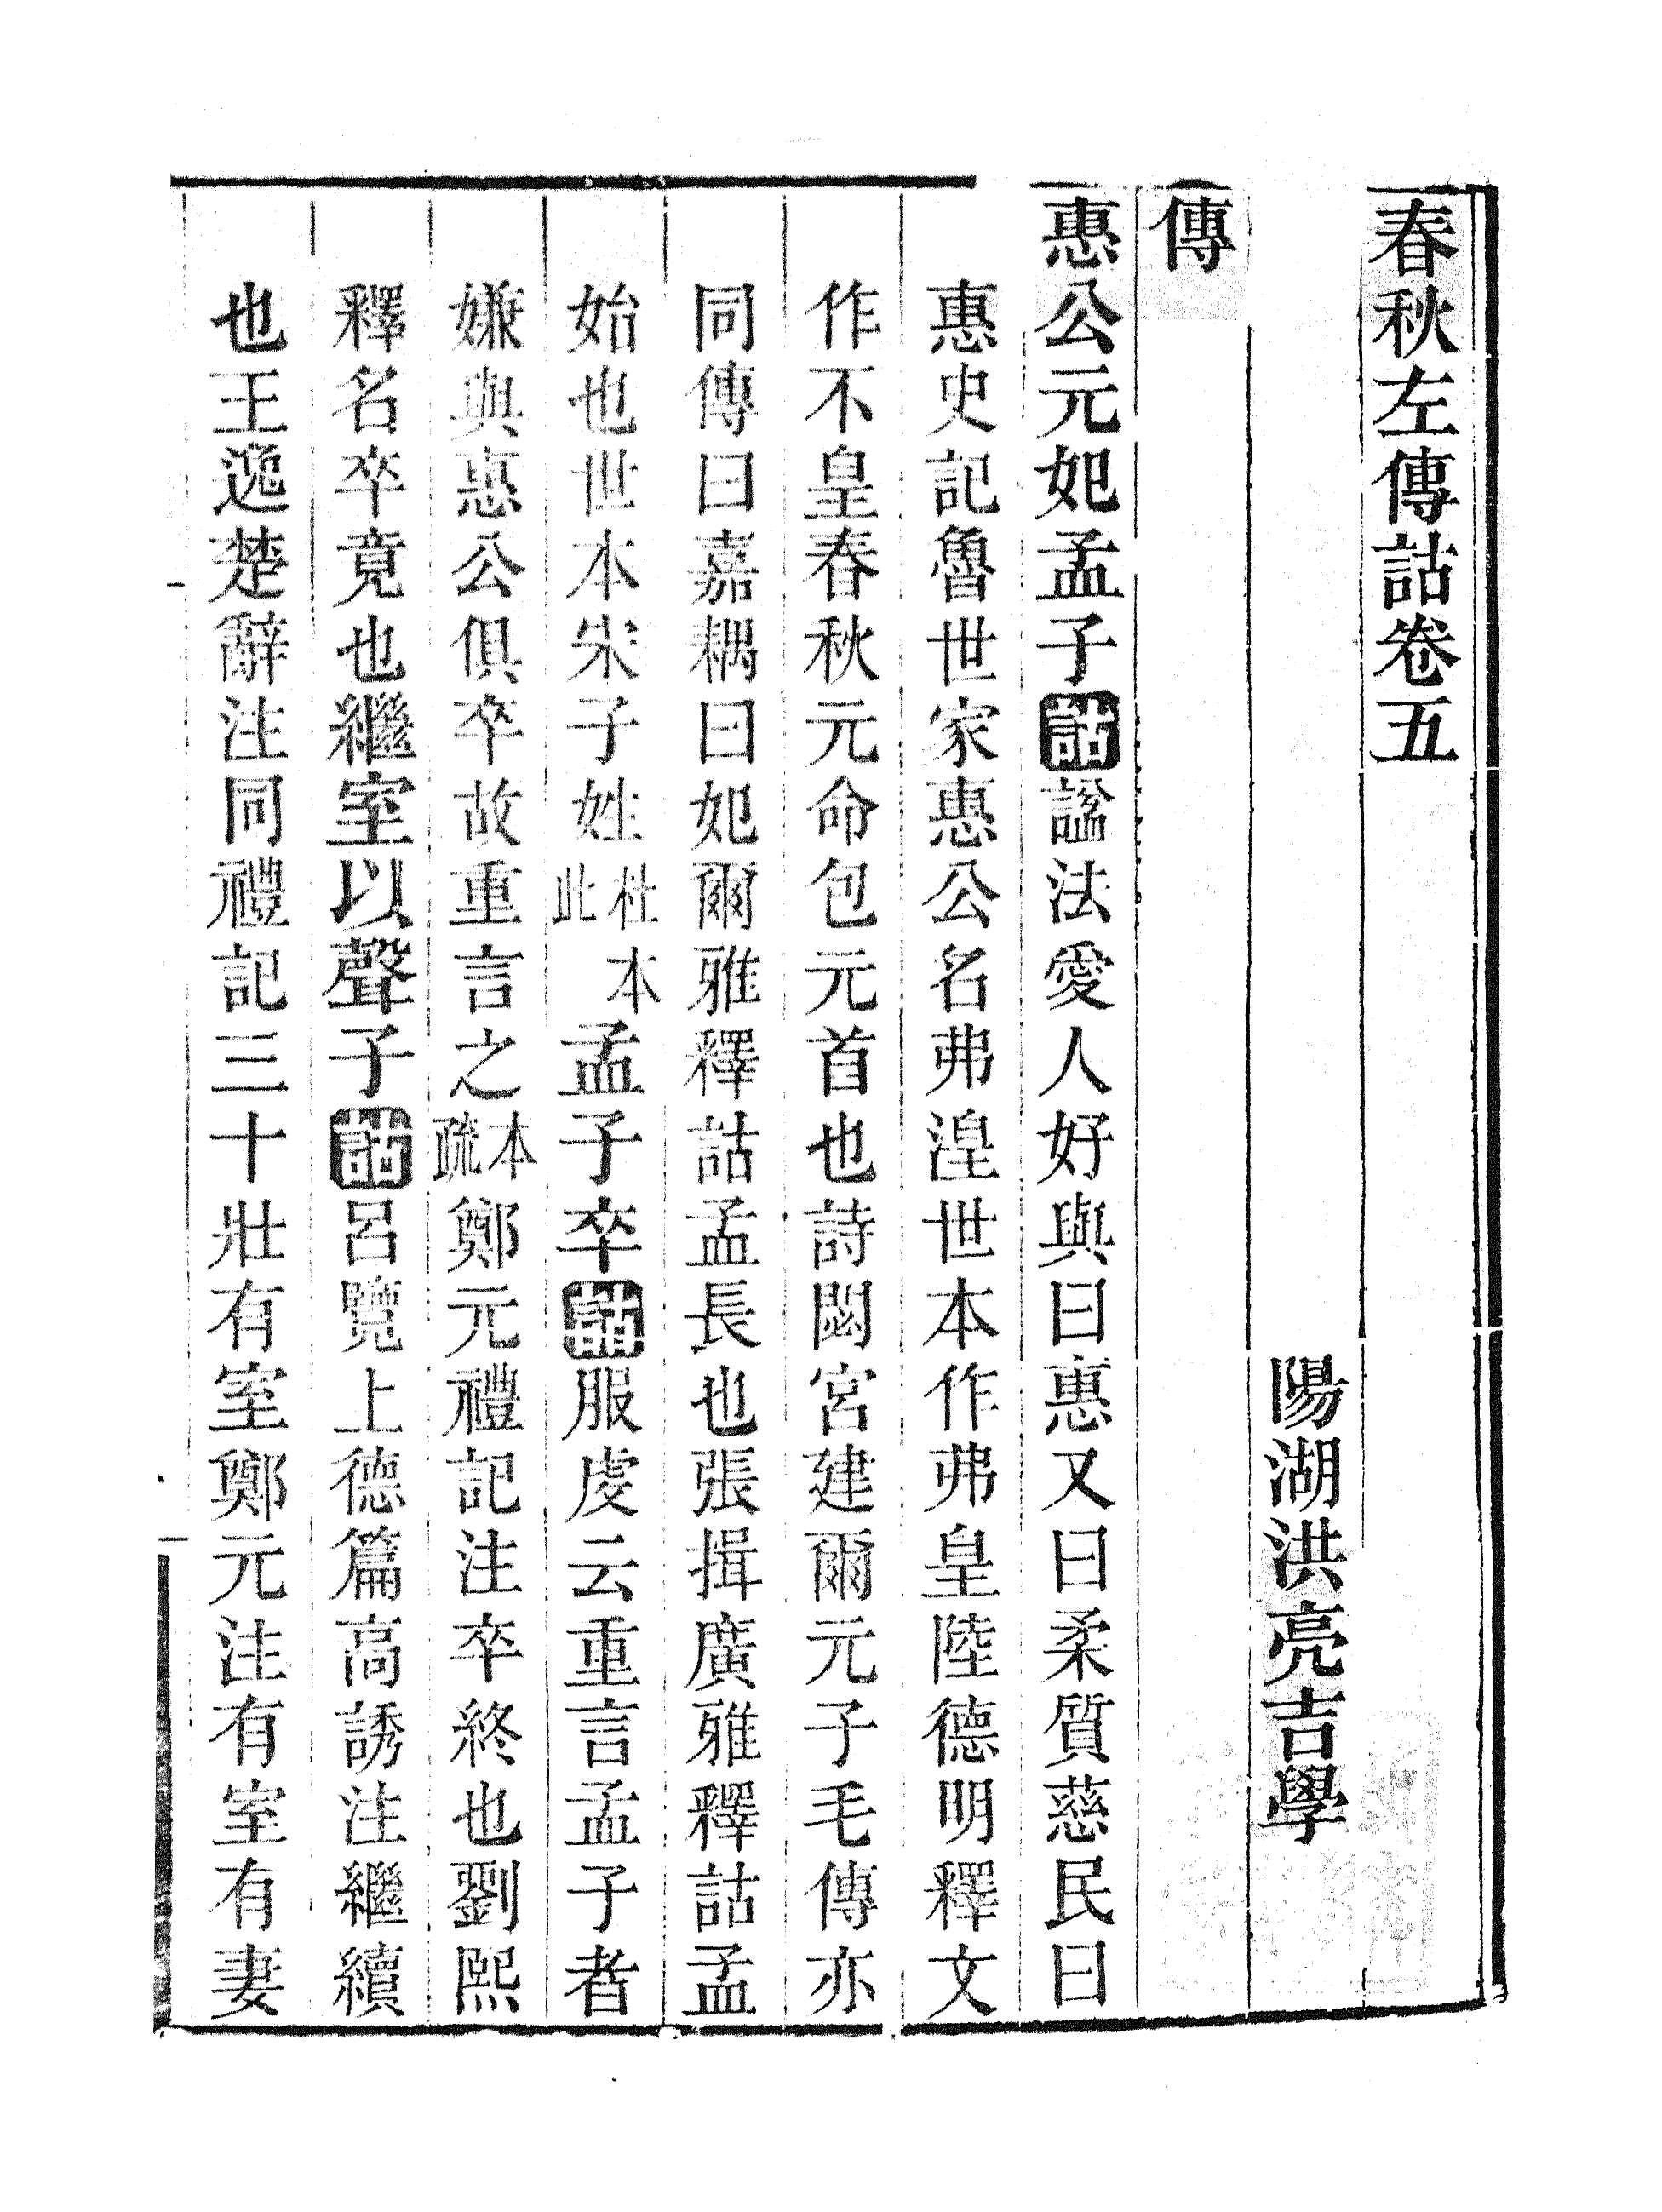 春秋左傳詁卷五
陽湖洪亮吉學
傳
惠公元妃孟子詁諡法愛人好與曰惠又曰柔質慈民曰
惠史記魯世家惠公名弗湟世本作弗皇陸德明釋文
作不皇春秋元命包元首也詩閟宮建爾元子毛傳亦
同傳曰嘉耦曰妃爾雅釋詁孟長也張揖廣雅釋詁孟
始也世本宋子姓杜本此孟子卒詁服虔云重言孟子者
嫌與惠公俱卒故重言之本疏鄭元禮記注卒終也劉熙
釋名卒竟也繼室以聲子詁呂覽上德篇高誘注繼續
也王逸楚辭注同禮記三十壯有室鄭元注有室有妻